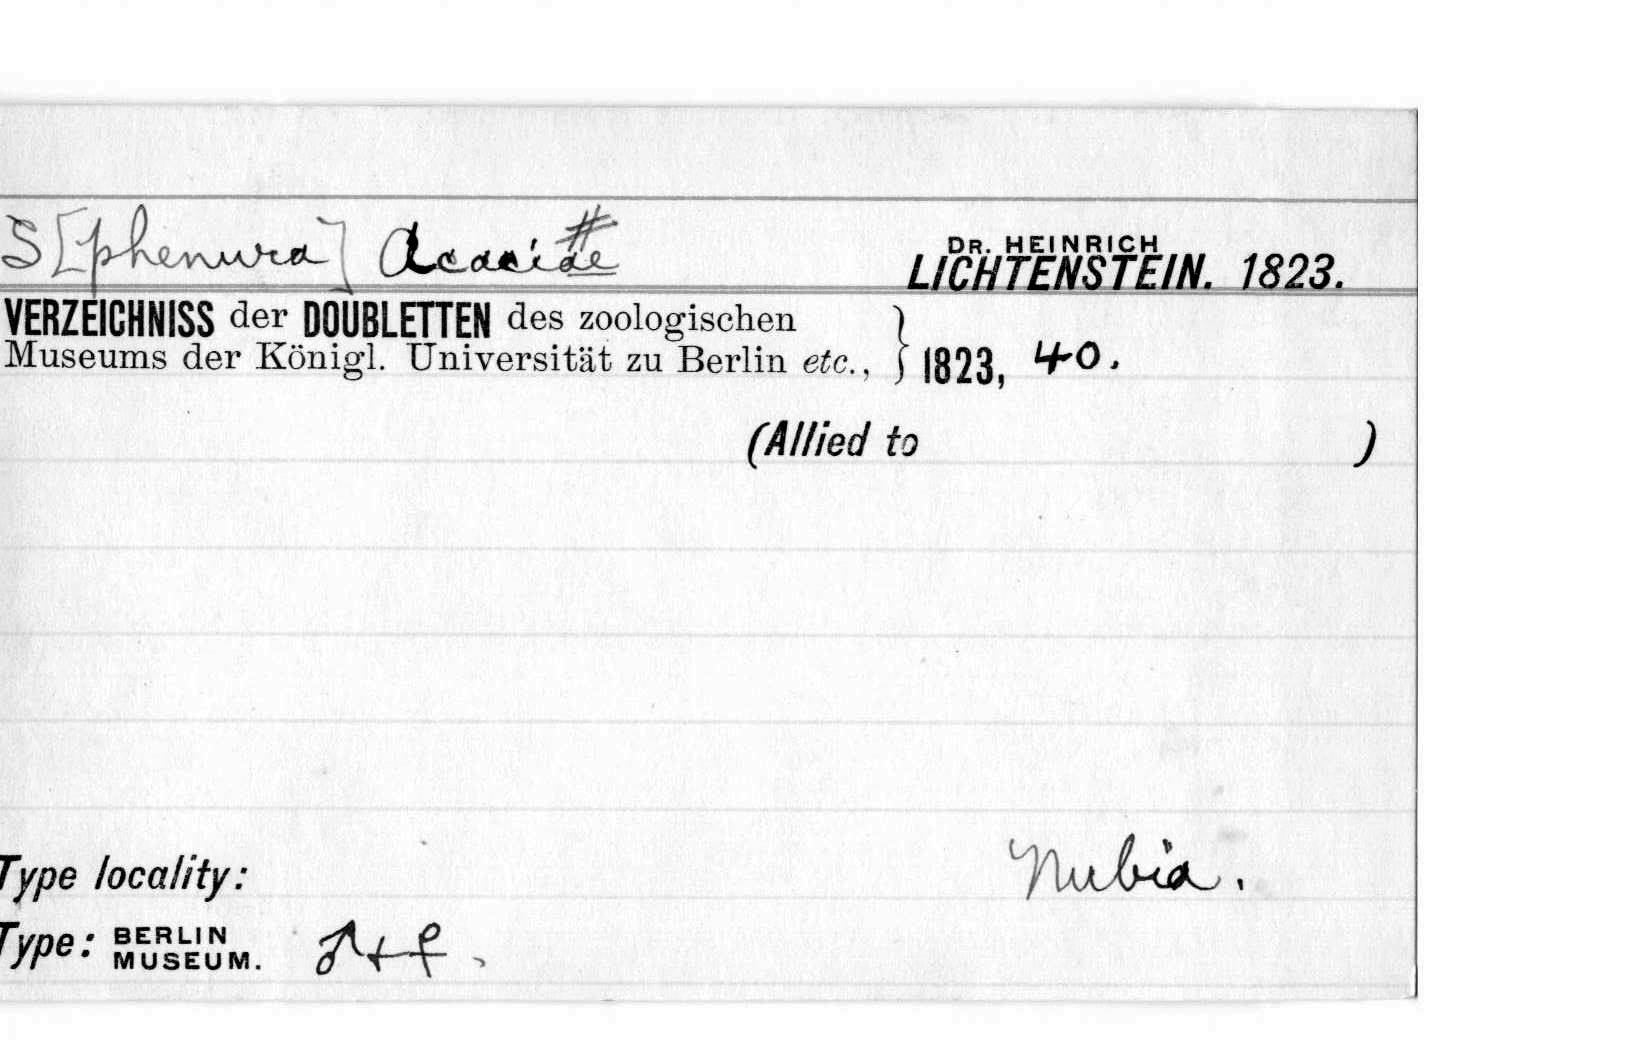 S[phenura] Acaciae #
DR. HEINRICH
LICHTENSTEIN. 1823.
VERZEICHNISS der DOUBLETTEN des zoologischen
Museums der Königl. Universität zu Berlin etc., } 1823, 40.
(Allied to )
Type locality: Nubia.
Type: BERLIN MUSEUM. ♂+♀.